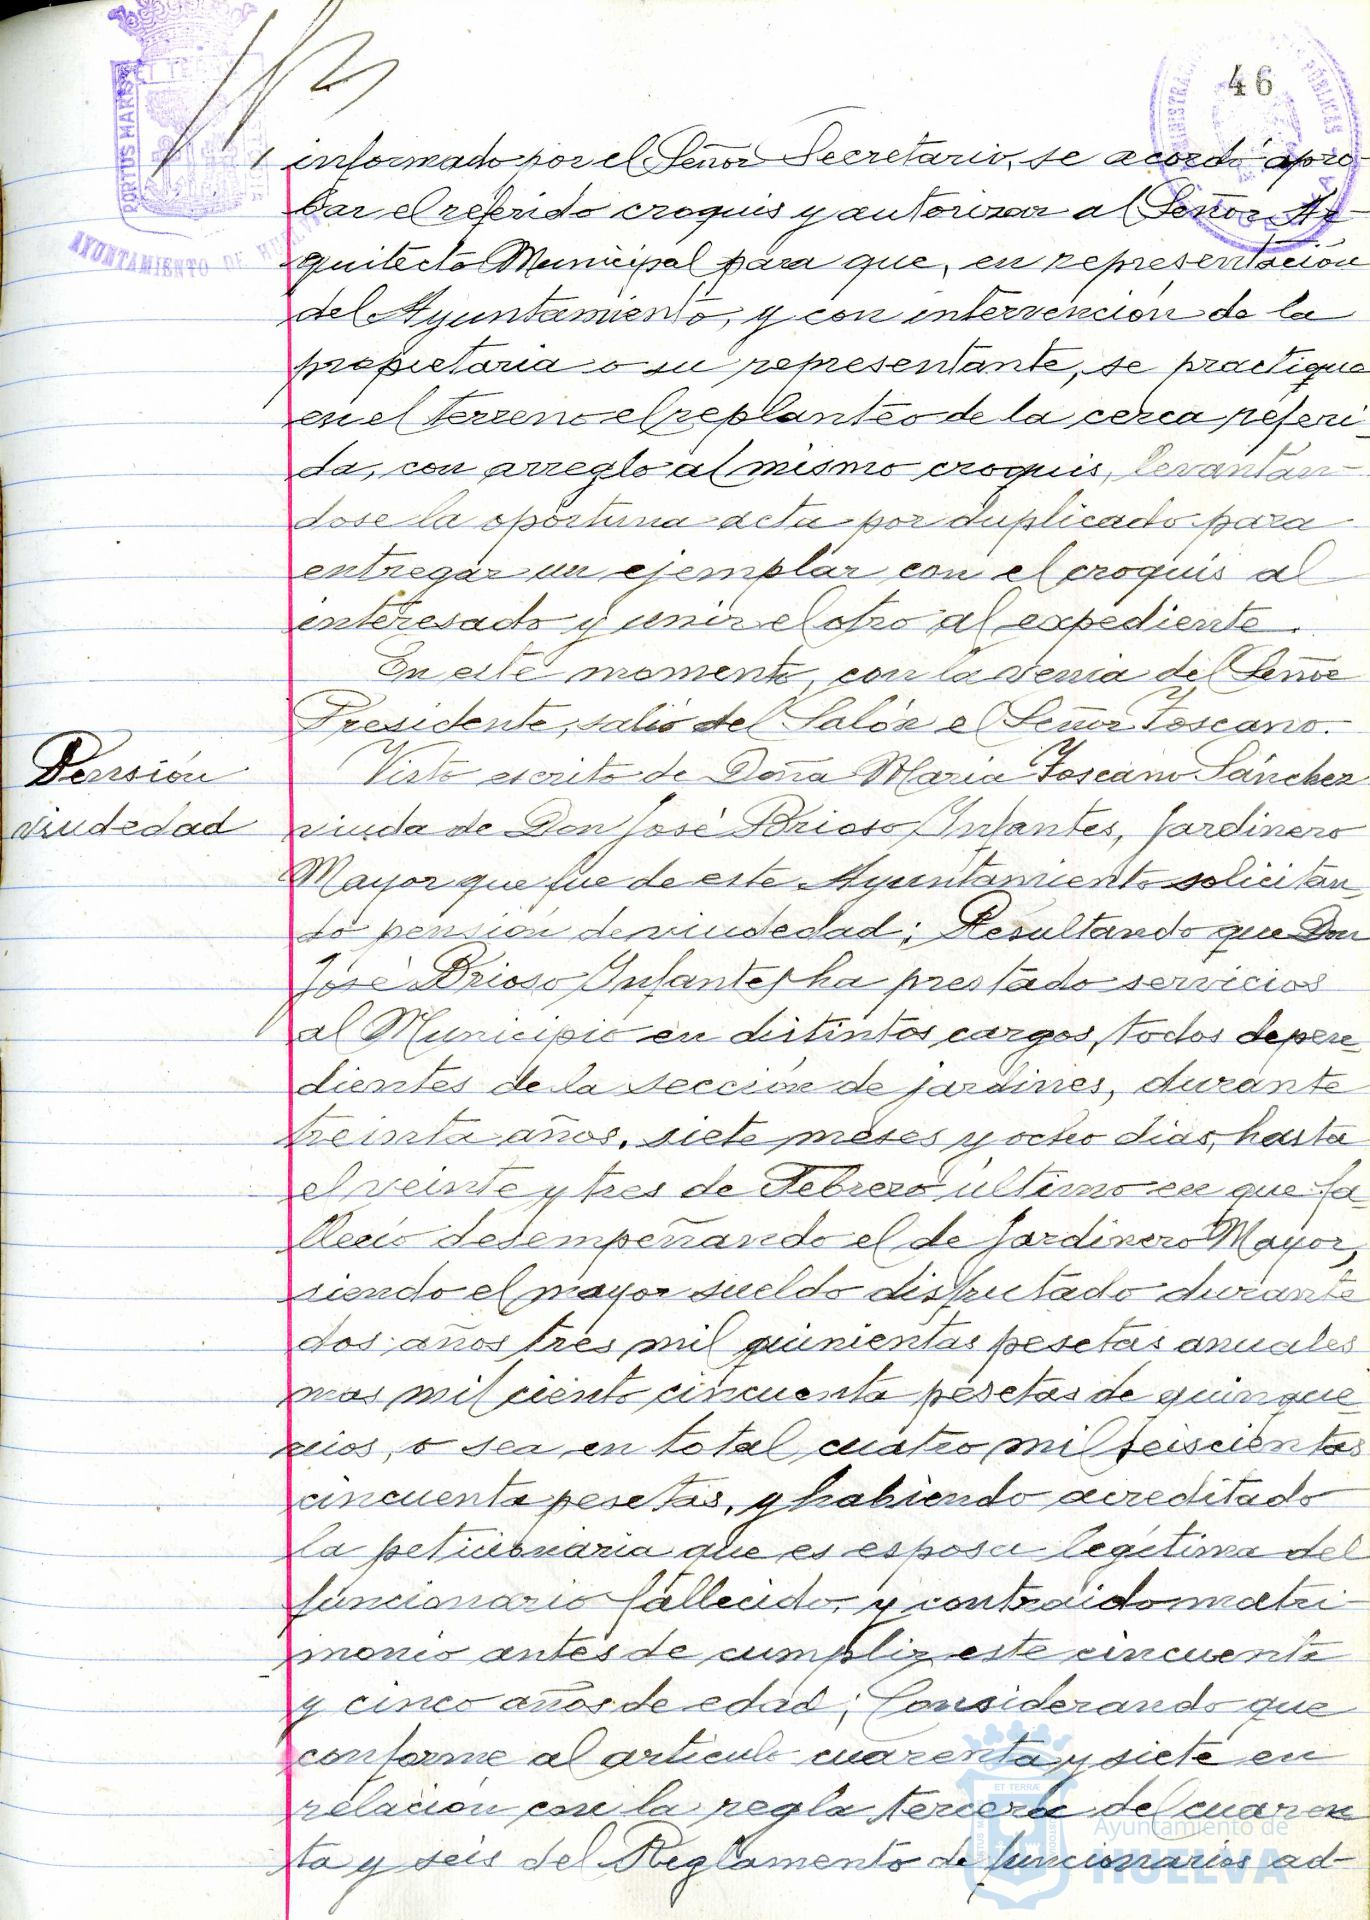 46
PORTUS MARIS
ET TERRÆ
AYUNTAMIENTO DE HUELVA
informado por el Señor Secretario, se acordó apro-
bar el referido croquis y autorizar al Señor Ar-
quitecto Municipal para que, en representación
del Ayuntamiento, y con intervención de la
propietaria o su representante, se practique
en el terreno el replanteo de la cerca referi-
da, con arreglo al mismo croquis, levantán-
dose la oportuna acta por duplicado para
entregar un ejemplar con el croquis al
interesado y unir el otro al expediente.
En este momento, con la venia del Señor
Presidente, salió del Salón el Señor Toscano.
Pensión
viudedad
Visto escrito de Doña Maria Toscano Sánchez
viuda de Don José Brioso Infantes, Jardinero
Mayor que fue de este Ayuntamiento solicitan-
do pensión de viudedad; Resultando que Don
José Brioso Infantes ha prestado servicios
al Municipio en distintos cargos, todos depen-
dientes de la sección de jardines, durante
treinta años, siete meses y ocho dias, hasta
el veinte y tres de Febrero último en que fa-
lleció desempeñando el de Jardinero Mayor,
siendo el mayor sueldo disfrutado durante
dos años tres mil quinientas pesetas anuales
mas mil ciento cincuenta pesetas de quinque-
nios, o sea en total cuatro mil seiscientas
cincuenta pesetas, y habiendo acreditado
la peticionaria que es esposa legítima del
funcionario fallecido, y contraido matri-
monio antes de cumplir este cincuenta
y cinco años de edad; Considerando que
conforme al artículo cuarenta y siete en
relación con la regla tercera del cuaren
ta y seis del Reglamento de funcionarios ad-
Ayuntamiento de
HUELVA